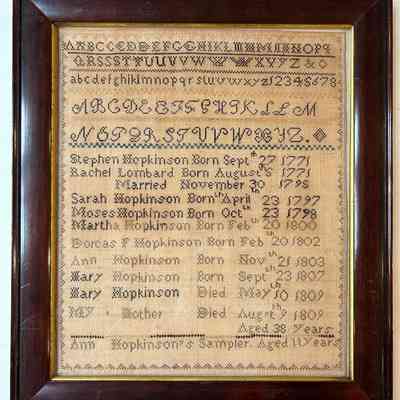 AABCCCDDEFGGHIKLMMMIINOPQ
QRSSSTTUUUVVWWWXYYZ &
abcdefghiklmnopqrstuvwxyz12345678
ABCDEFFGHIKLLM
NOPQRSTUVWXYZ.
Stephen Hopkinson Born Septm 27 1771
Rachel Lombard Born August 5 1771
Married November 30 1795
Sarah Hopkinson Born April 23 1797
Moses Hopkinson Born Octth 23 1798
Martha Hopkinson Born Febth 20 1800
Dorcas F Hopkinson Born Febth 20 1802
Ann Hopkinson Born Novth 21 1803
Mary Hopkinson Born Septth 23 1807
Mary Hopkinson Died Mayth 10 1809
MY Mother Died Augstth 9 1809
Aged 38 Years
Ann Hopkinson's Sampler. Aged 11 Years